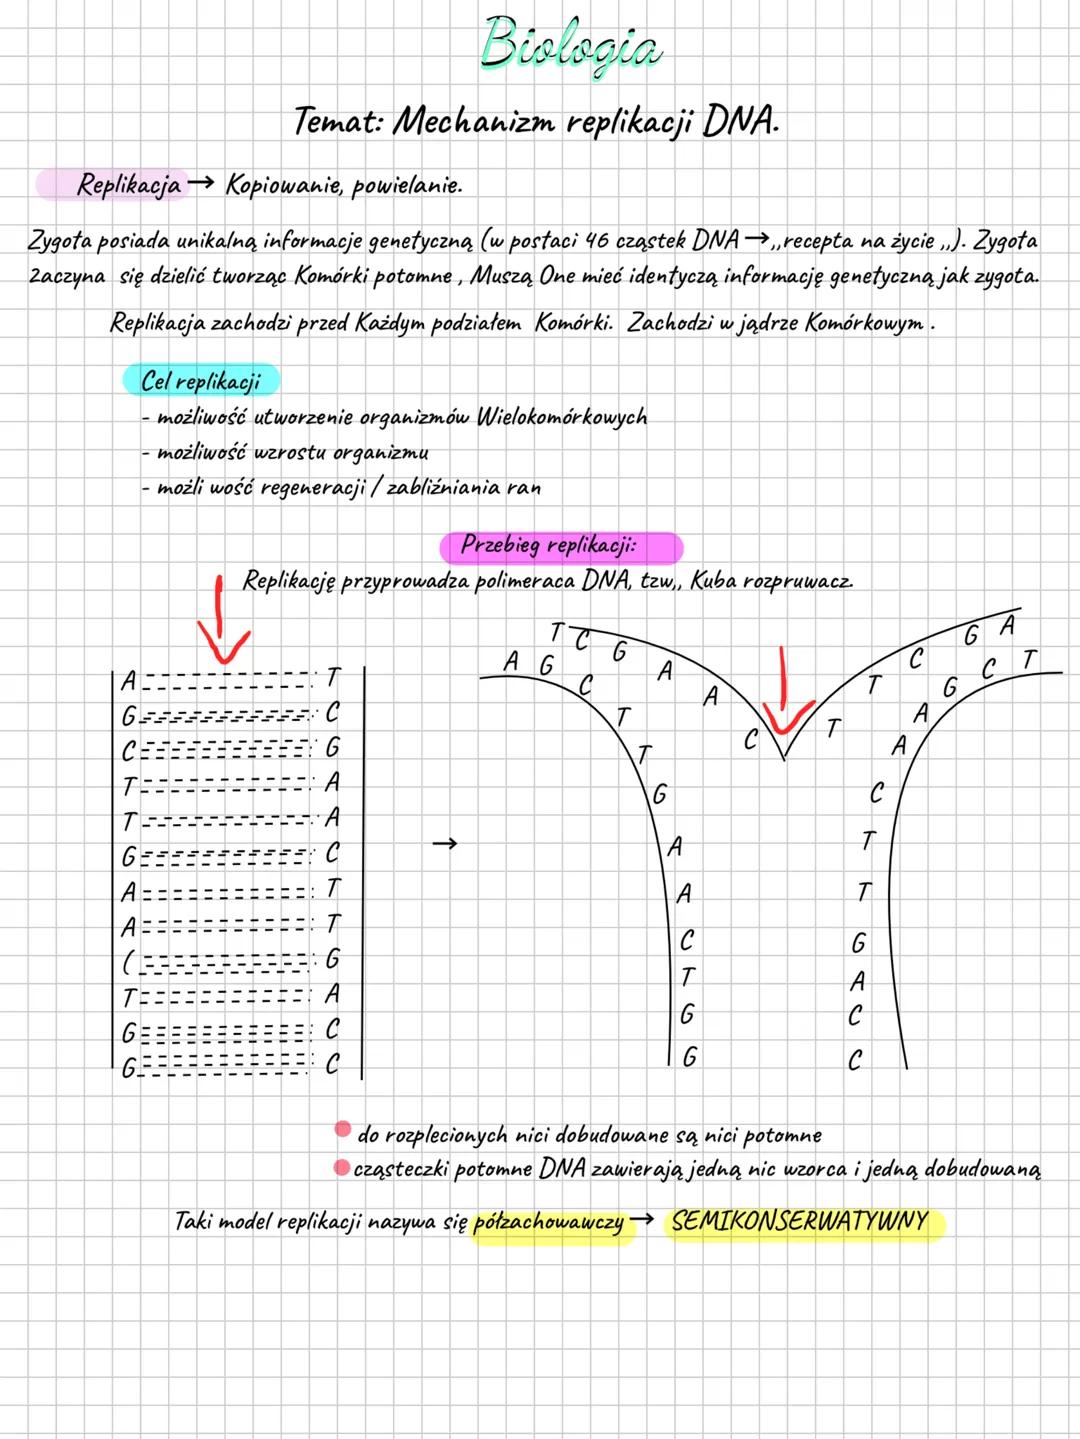 Biologia
Temat: Mechanizm replikacji DNA.
Replikacja → Kopiowanie, powielanie.
Zygota posiada unikalną informacje genetyczną (w postaci 46 cząstek DNA →,,recepta na życie ,,). Zygota
zaczyna się dzielić tworząc Komórki potomne , Muszą One mieć identyczą informację genetyczną jak zygota.
Replikacja zachodzi przed Każdym podziałem Komórki. Zachodzi w jądrze Komórkowym .
Cel replikacji
- możliwość utworzenie organizmów Wielokomórkowych
- możliwość wzrostu organizmu
- możli wość regeneracji / zabliźniania ran
Przebieg replikacji:
Replikację przyprowadza polimeraca DNA, tzw,, Kuba rozpruwacz.
A T
G C
C G
T A
T A
G C
A T
A T
( G
T A
G C
G C
→
T C G A A C
A G C T T G A A C T G G
T T C G A
T C G A A C T T G A C C
do rozplecionych nici dobudowane są nici potomne
cząsteczki potomne DNA zawierają jedną nic wzorca i jedną dobudowaną
Taki model replikacji nazywa się półzachowawczy → SEMIKONSERWATYWNY